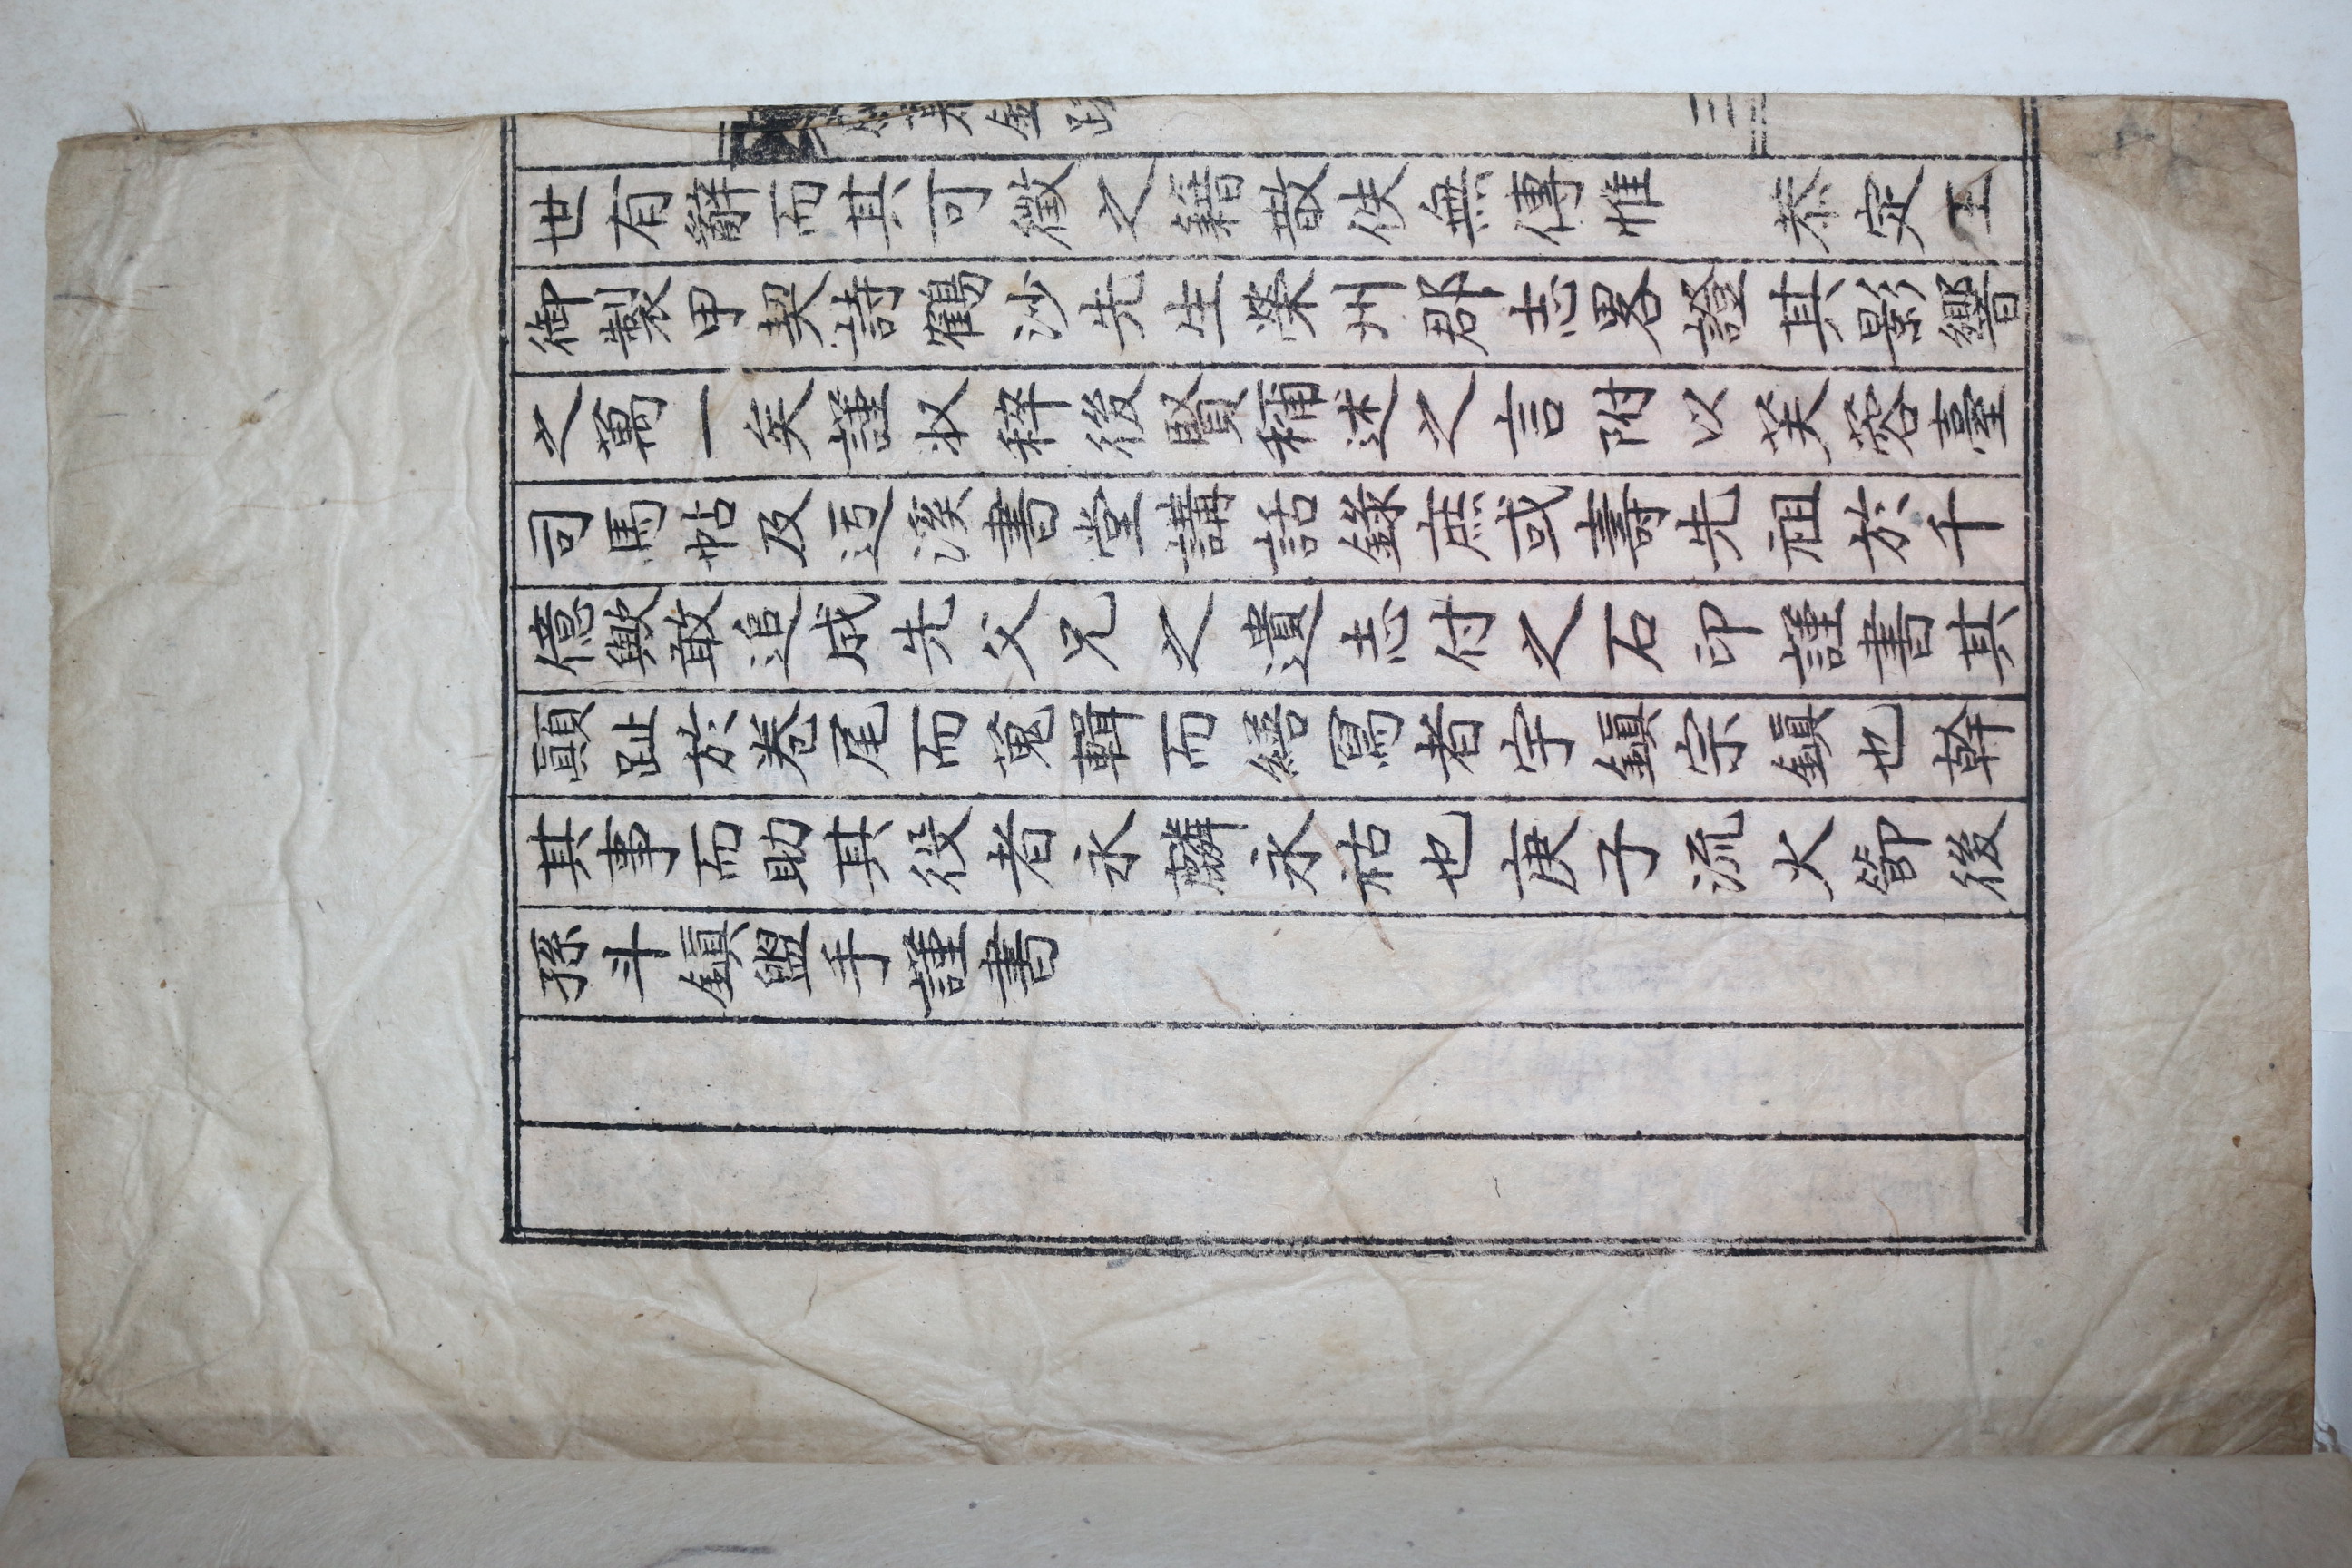 世有辭而其可徵之籍散佚無傳惟　恭定王
御製甲契詩鶴沙先生榮州郡志畧證其影響
之萬一矣謹收稡後賢稱述之言附以芙蓉臺
司馬帖及迃溪書堂講話錄庶或壽先祖於千
億歟敢追成先父兄之遺志付之石印謹書其
顚趾於卷尾而蒐輯而繕寫者宇鎭宗鎭也幹
其事而助其役者永麟永祜也庚子流火節後
孫斗鎭盥手謹書
三